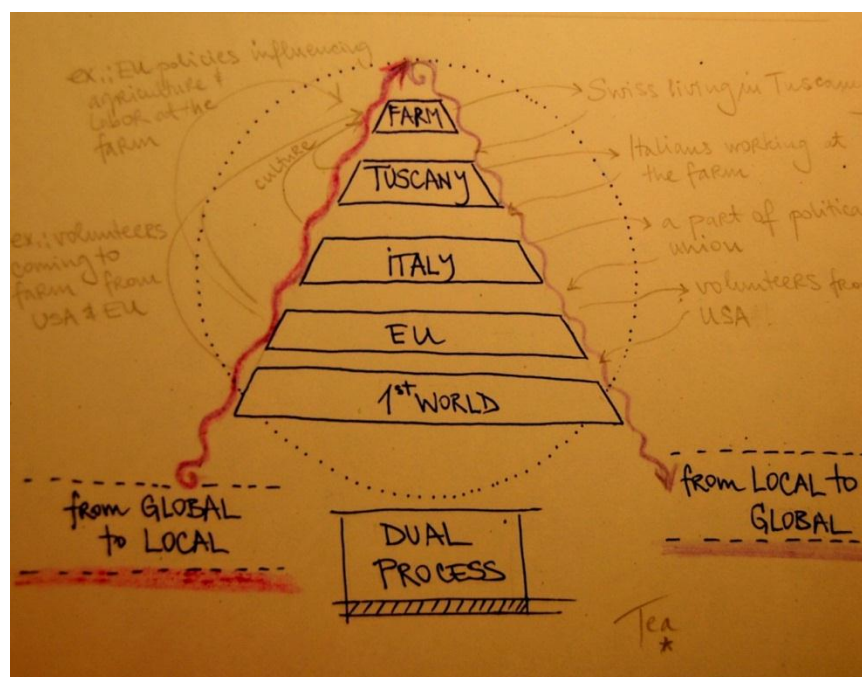 ex.: EU policies influencing
agriculture &
labor at the
farm
culture
ex.: volunteers
coming to
farm from
USA & EU
FARM
TUSCANY
iTALY
EU
1st WORLD
Swiss living in Tuscany
Italians working at
the farm
a part of political
union
volunteers from
USA
from GLOBAL
to LOCAL
DUAL
PROCESS
from LOCAL to
GLOBAL
Tea